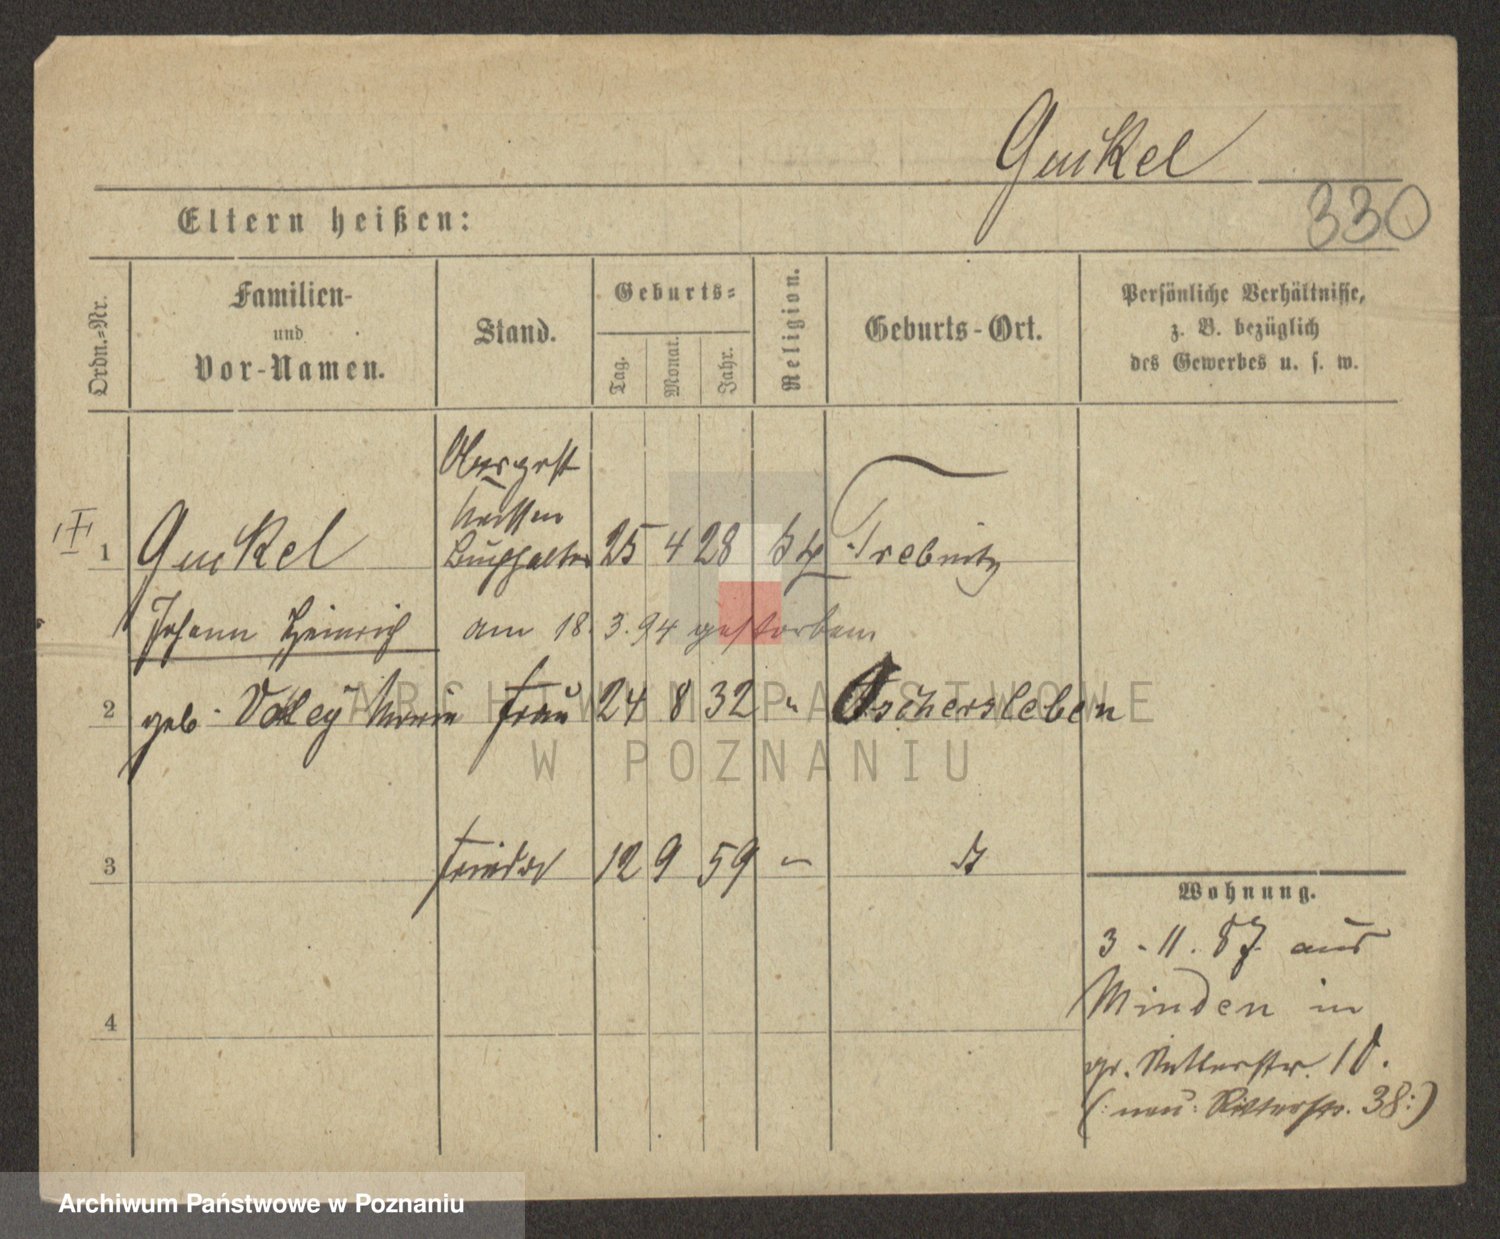 Guckel
330
Eltern heißen:
Ordn.-Nr.
Familien-
und
Vor-Namen.
Stand.
Geburts-
Tag.
Monat.
Jahr.
Religion.
Geburts-Ort.
Persönliche Verhältnisse,
z. B. bezüglich
des Gewerbes u. s. w.
1
Guckel
Buchhalter
25 4 28
Trebnitz
Johann Heinrich
am 18. 3. 94 gestorben
2
geb. Marie
Frau
24 8 32 "
Oschersleben
3
12 9 59
4
Wohnung.
3. 11. 87 aus
Minden in
gr. Ritterstr. 10.
(: neu: Ritterstr. 38:)
ARCHIWUM PAŃSTWOWE
W POZNANIU
Archiwum Państwowe w Poznaniu